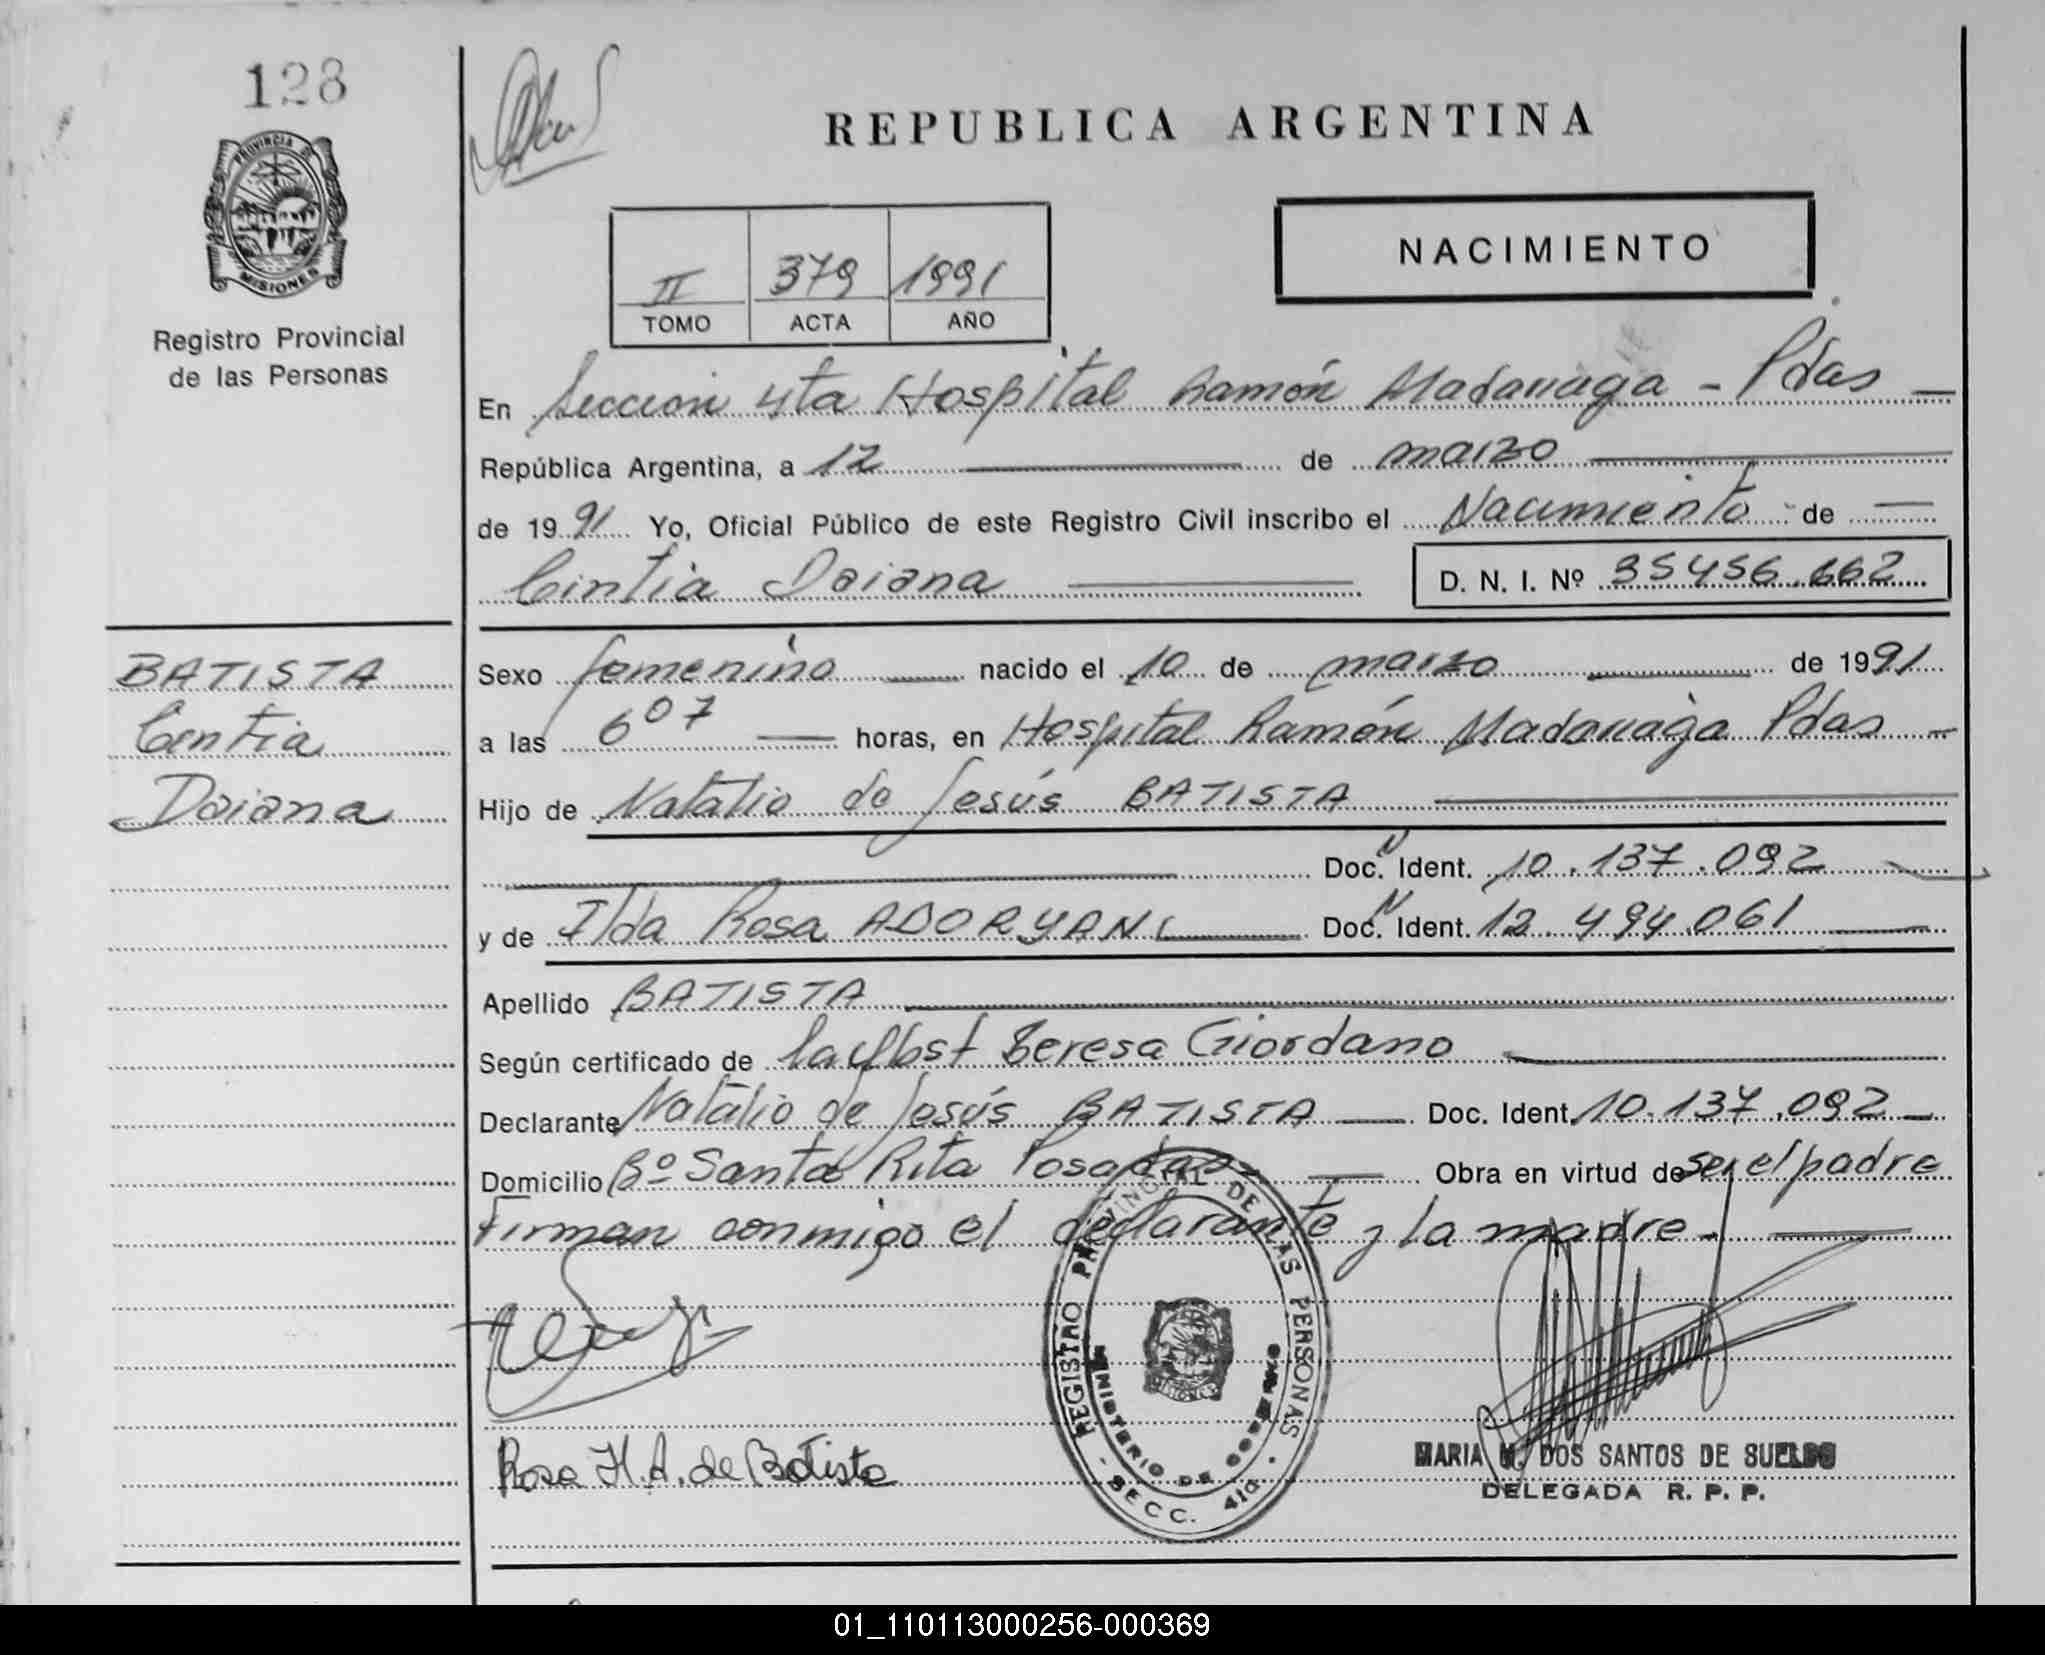 128
REPUBLICA ARGENTINA
PROVINCIA DE
MISIONES
Registro Provincial
de las Personas
II 379 1991
TOMO ACTA AÑO
NACIMIENTO
En Seccion 4ta Hospital Ramón Madariaga - Pdas -
República Argentina, a 12 de marzo
de 1991 Yo, Oficial Público de este Registro Civil inscribo el Nacimiento de
Cintia Daiana
D. N. I. Nº 35456.662
BATISTA
Cintia
Daiana
Sexo femenino nacido el 10 de marzo de 1991
a las 6 07 horas, en Hospital Ramón Madariaga Pdas -
Hijo de Natalio de Jesús BATISTA
Doc. N Ident. 10.137.092
y de Ilda Rosa ADORYAN Doc. N Ident. 12.494.061
Apellido BATISTA
Según certificado de Teresa Giordano
Declarante Natalio de Jesús BATISTA Doc. Ident. 10.137.092
Domicilio Bº Santa Rita Posadas Obra en virtud de ser el padre
Firman conmigo el declarante y la madre.
REGISTRO PROVINCIAL DE LAS PERSONAS
MINISTERIO DE GOBIERNO
SECC. 4ta.
Rosa H. A. de Batista
MARIA DOS SANTOS DE SUELDO
DELEGADA R. P. P.
01_110113000256-000369